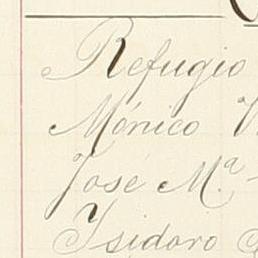 Refugio
Mónico
José Mª
Isidoro